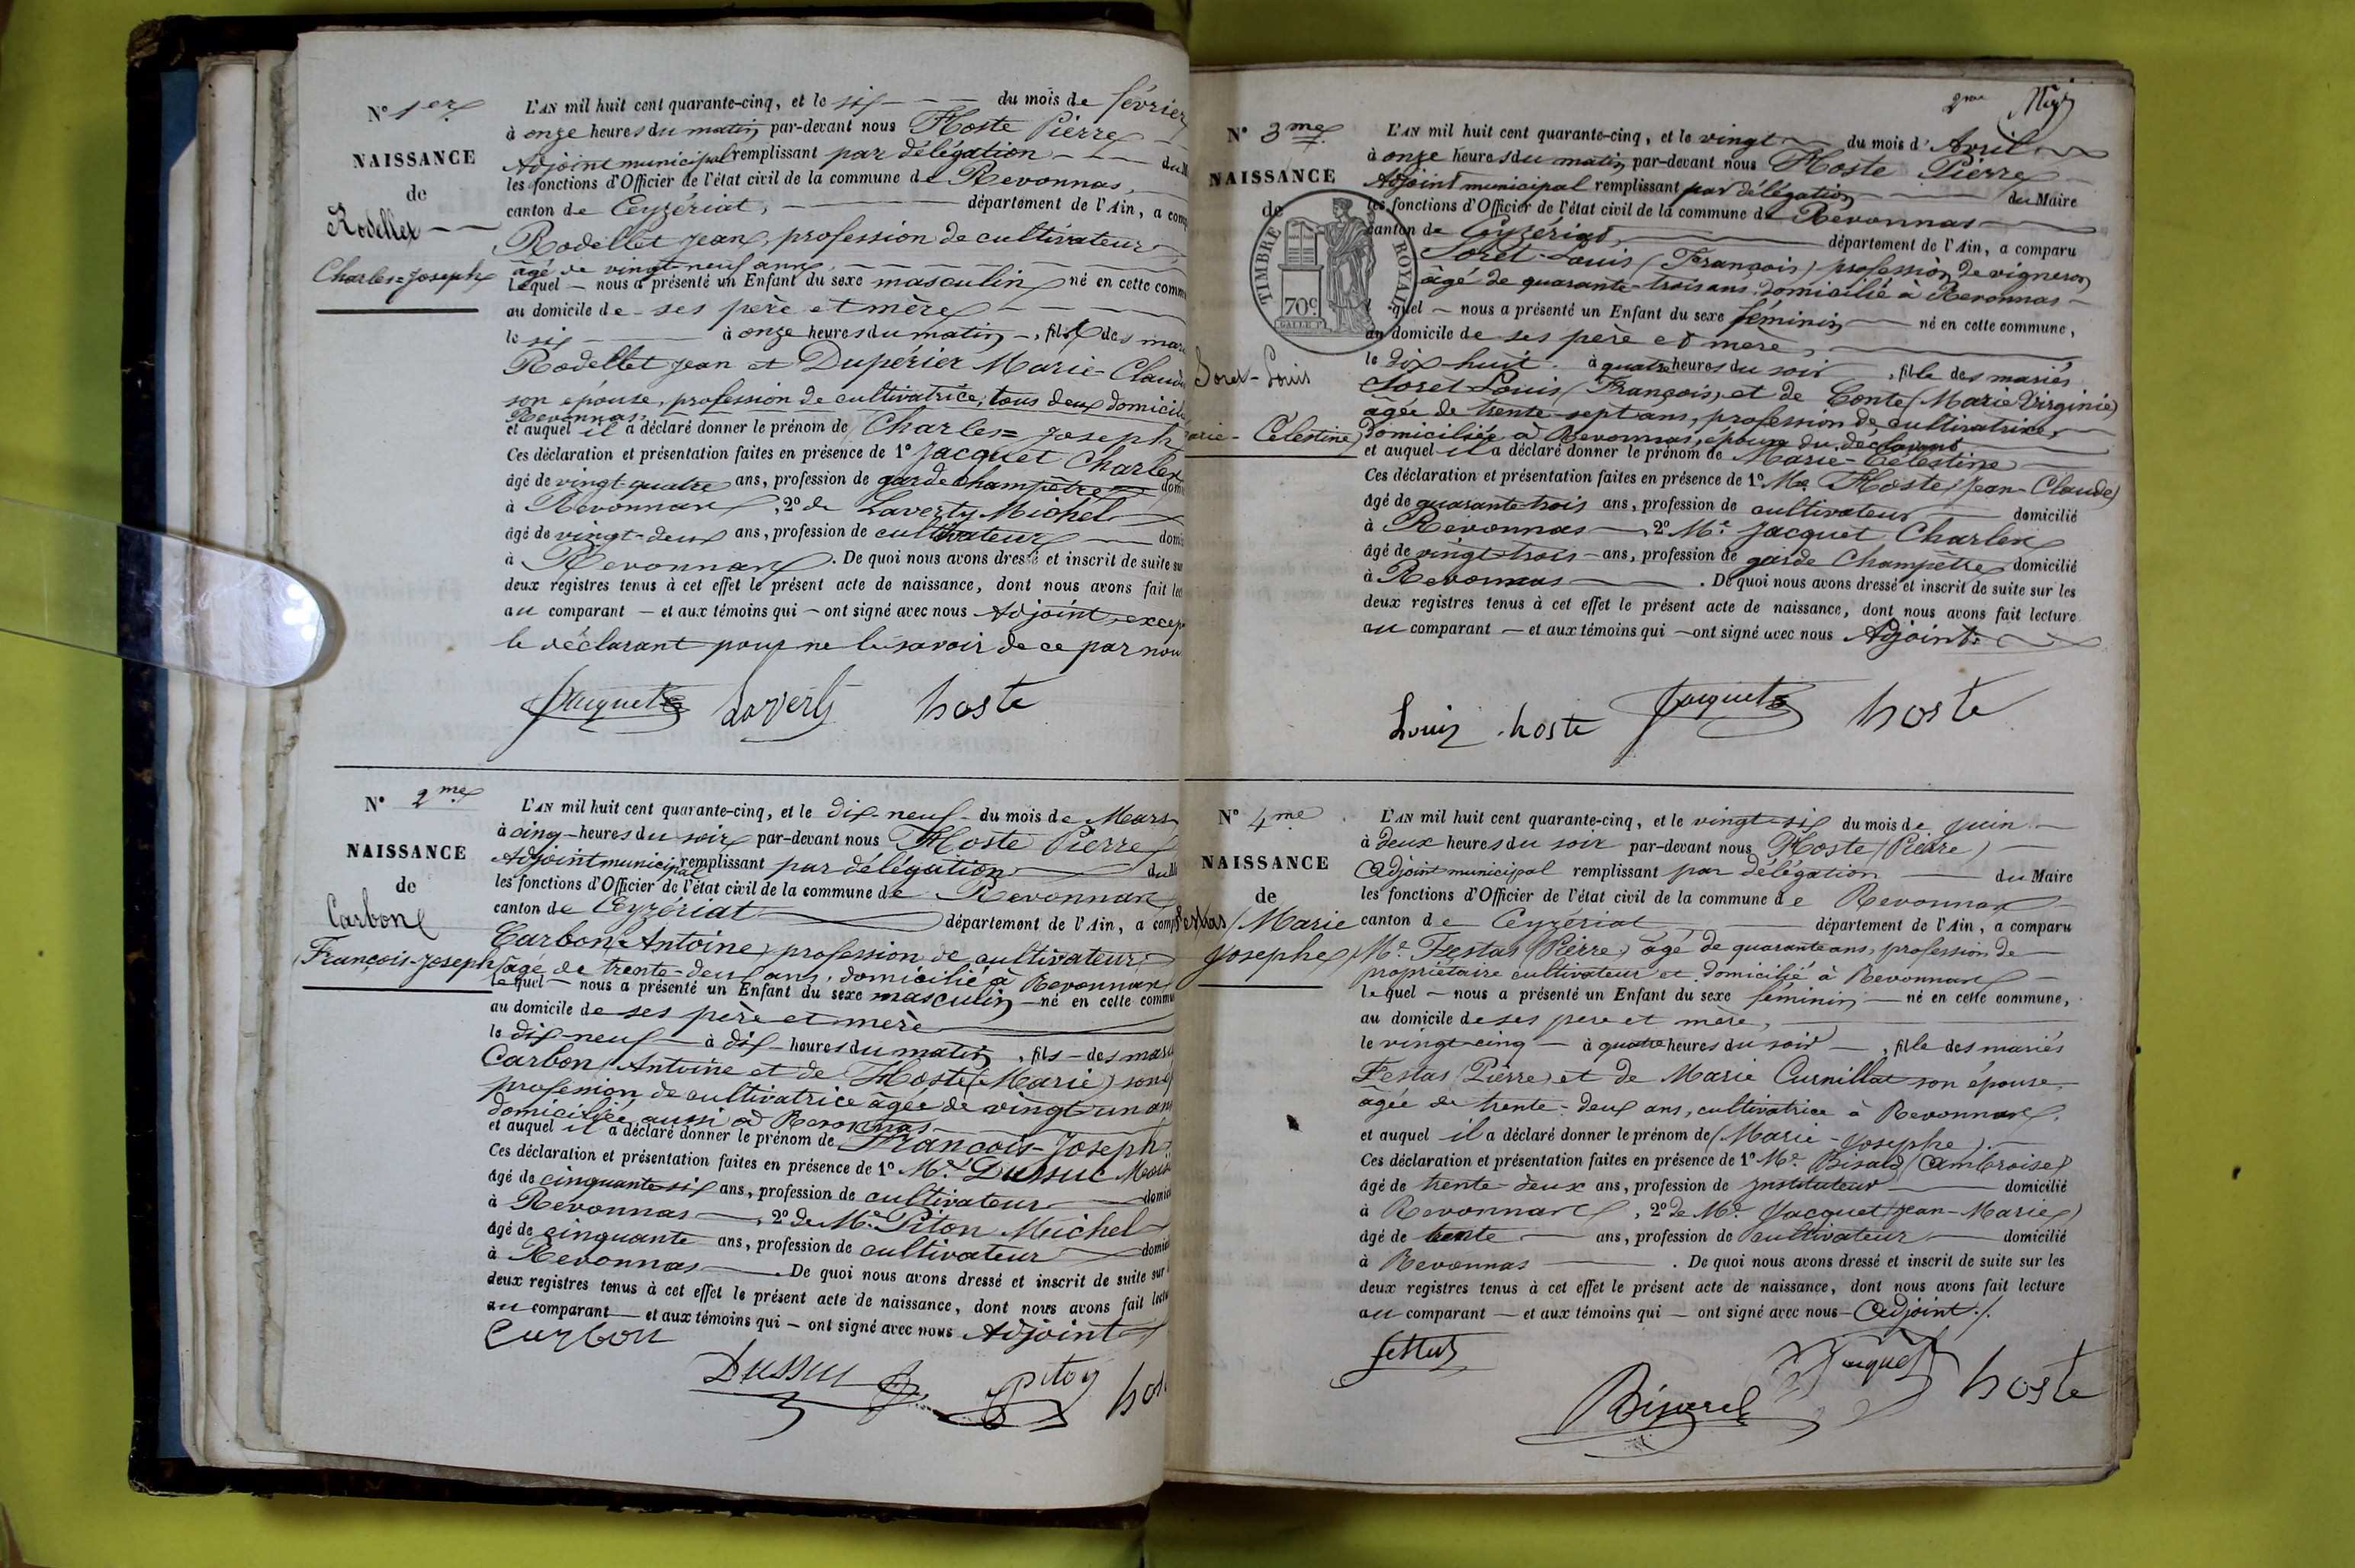 N° 1er
NAISSANCE
de
Rodellet
Charles=Joseph
L'AN mil huit cent quarante-cinq, et le six du mois de février
à onze heures du matin par-devant nous Hoste Pierre
Adjoint municipal remplissant par délégation du M
les fonctions d'Officier de l'état civil de la commune de Revonnas,
canton de Ceyzériat, département de l'Ain, a comp
Rodellet Jean, profession de cultivateur
âgé de vingt-neuf ans,
lequel nous a présenté un Enfant du sexe masculin né en cette comm
au domicile de ses père et mère
le six à onze heures du matin, fils des mar
Rodellet Jean et Dupérier Marie-Claud
son épouse, profession de cultivatrice, tous deux domicili
Revonnas,
et auquel il a déclaré donner le prénom de Charles=Joseph
Ces déclaration et présentation faites en présence de 1° Jacquet Charles
âgé de vingt-quatre ans, profession de garde champêtre domi
à Revonnas, 2° de Laverty Michel
âgé de vingt-deux ans, profession de cultivateur domi
à Revonnas. De quoi nous avons dressé et inscrit de suite su
deux registres tenus à cet effet le présent acte de naissance, dont nous avons fait lec
au comparant — et aux témoins qui — ont signé avec nous Adjoint, excep
le déclarant pour ne le savoir de ce par nou
Jacquet Laverty hoste
N° 2me
NAISSANCE
de
Carbon
François-Joseph
L'AN mil huit cent quarante-cinq, et le dix-neuf du mois de Mars
à cinq heures du soir par-devant nous Hoste Pierre
Adjoint municipal remplissant par délégation du M
les fonctions d'Officier de l'état civil de la commune de Revonnas
canton de Ceyzériat département de l'Ain, a comp
Carbon Antoine, profession de cultivateur
âgé de trente-deux ans, domicilié à Revonnas
lequel — nous a présenté un Enfant du sexe masculin — né en cette commu
au domicile de ses père et mère
le dix-neuf — à dix heures du matin, fils — des mari
Carbon Antoine et de Hoste (Marie) son é
profession de cultivatrice âgée de vingt-un an
domiciliée aussi à Revonnas
et auquel il a déclaré donner le prénom de François-Joseph
Ces déclaration et présentation faites en présence de 1° Mr. Dussuc
âgé de cinquante-six ans, profession de cultivateur domici
à Revonnas, 2° de Mr. Piton Michel
âgé de cinquante ans, profession de cultivateur domici
à Revonnas. De quoi nous avons dressé et inscrit de suite sur
deux registres tenus à cet effet le présent acte de naissance, dont nous avons fait lectu
au comparant — et aux témoins qui — ont signé avec nous Adjoint
Carbon
Dussuc Piton hos
2me
N° 3me
NAISSANCE
de
TIMBRE ROYAL
70c
Soret-Louis
arie-Célestine
L'AN mil huit cent quarante-cinq, et le vingt du mois d'Avril
à onze heures du matin par-devant nous Hoste Pierre
Adjoint municipal remplissant par délégation du Maire
les fonctions d'Officier de l'état civil de la commune de Revonnas
canton de Ceyzériat, département de l'Ain, a comparu
Soret-Louis (François) profession de vigneron
âgé de quarante-trois ans domicilié à Revonnas
lequel — nous a présenté un Enfant du sexe féminin — né en cette commune,
au domicile de ses père et mère,
le dix-huit à quatre heures du soir, fille des mariés
Soret-Louis (François) et de Conte (Marie Virginie)
âgée de trente-sept ans, profession de cultivatrice,
domiciliée à Revonnas, épouse du déclarant
et auquel il a déclaré donner le prénom de Marie-Célestine
Ces déclaration et présentation faites en présence de 1° Mr. Hoste (Jean-Claude)
âgé de quarante-trois ans, profession de cultivateur domicilié
à Revonnas, 2° Mr. Jacquet Charles
âgé de vingt-trois ans, profession de garde Champêtre domicilié
à Revonnas. De quoi nous avons dressé et inscrit de suite sur les
deux registres tenus à cet effet le présent acte de naissance, dont nous avons fait lecture
au comparant — et aux témoins qui — ont signé avec nous Adjoint
Louis hoste Jacquet hoste
N° 4me
NAISSANCE
de
Festas (Marie
Josephe)
L'AN mil huit cent quarante-cinq, et le vingt-six du mois de juin
à deux heures du soir par-devant nous Hoste (Pierre)
Adjoint municipal remplissant par délégation du Maire
les fonctions d'Officier de l'état civil de la commune de Revonnas
canton de Ceyzériat département de l'Ain, a comparu
Mr. Festas (Pierre) âgé de quarante ans, profession de
propriétaire cultivateur et domicilié à Revonnas
lequel — nous a présenté un Enfant du sexe féminin — né en cette commune,
au domicile de ses père et mère,
le vingt-cinq — à quatre heures du soir —, fille des mariés
Festas (Pierre) et de Marie Curnillat son épouse
âgée de trente-deux ans, cultivatrice à Revonnas,
et auquel il a déclaré donner le prénom de (Marie-Josephe).
Ces déclaration et présentation faites en présence de 1° Mr. Bisard (Ambroise)
âgé de trente-deux ans, profession de Instituteur domicilié
à Revonnas, 2° de Mr. Jacquet (Jean-Marie)
âgé de trente ans, profession de cultivateur domicilié
à Revonnas. De quoi nous avons dressé et inscrit de suite sur les
deux registres tenus à cet effet le présent acte de naissance, dont nous avons fait lecture
au comparant — et aux témoins qui — ont signé avec nous Adjoint./.
festas Jacquet hoste
Bisard